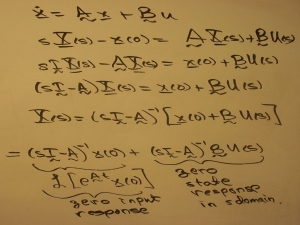 ẋ = A x + B u
s X(s) - x(0) = A X(s) + B U(s)
s I X(s) - A X(s) = x(0) + B U(s)
(s I - A) X(s) = x(0) + B U(s)
X(s) = (s I - A)⁻¹ [x(0) + B U(s)]
= (s I - A)⁻¹ x(0) + (s I - A)⁻¹ B U(s)
ℒ[e^{At} x(0)]
zero input
response
zero
state
response
in s domain.